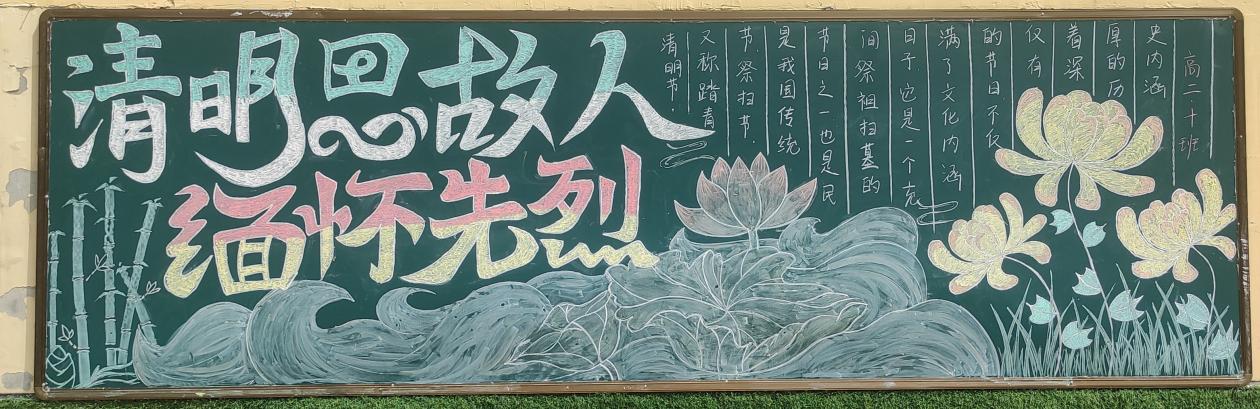 清明思故人
缅怀先烈
清明节·
又称踏青
节·祭扫节·
是我国传统
节日之一也是民
间祭祖扫墓的
日子它是一个充
满了文化内涵
的节日不仅
仅有
着深
厚的历
史内涵
高二十班